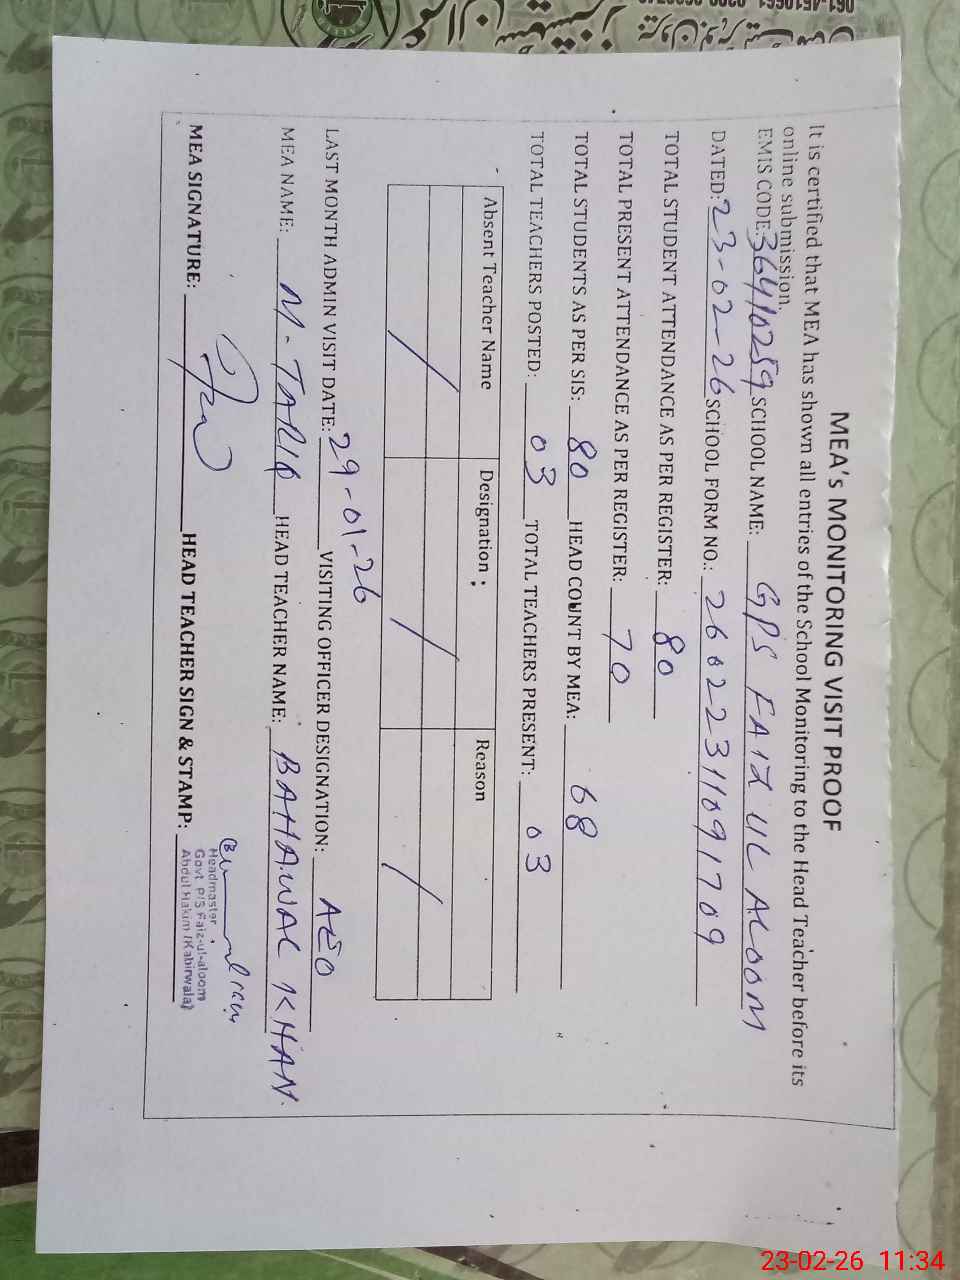 MEA's MONITORING VISIT PROOF
It is certified that MEA has shown all entries of the School Monitoring to the Head Teacher before its
online submission.
EMIS CODE: 36410259 SCHOOL NAME: GPS FAIZ UL ALOOM
DATED: 23-02-26 SCHOOL FORM NO.: 26022311091709
TOTAL STUDENT ATTENDANCE AS PER REGISTER: 80
TOTAL PRESENT ATTENDANCE AS PER REGISTER: 70
TOTAL STUDENTS AS PER SIS: 80 HEAD COUNT BY MEA: 68
TOTAL TEACHERS POSTED: 03 TOTAL TEACHERS PRESENT: 03
Absent Teacher Name Designation: Reason
/ / /
LAST MONTH ADMIN VISIT DATE: 29-01-26 VISITING OFFICER DESIGNATION: AEO
MEA NAME: M. TARIQ HEAD TEACHER NAME: BAHAWAL KHAN.
MEA SIGNATURE: HEAD TEACHER SIGN & STAMP:
Headmaster
Govt. P/S Faiz-ul-aloom
Abdul Hakim (Kabirwala)
23-02-26 11:34